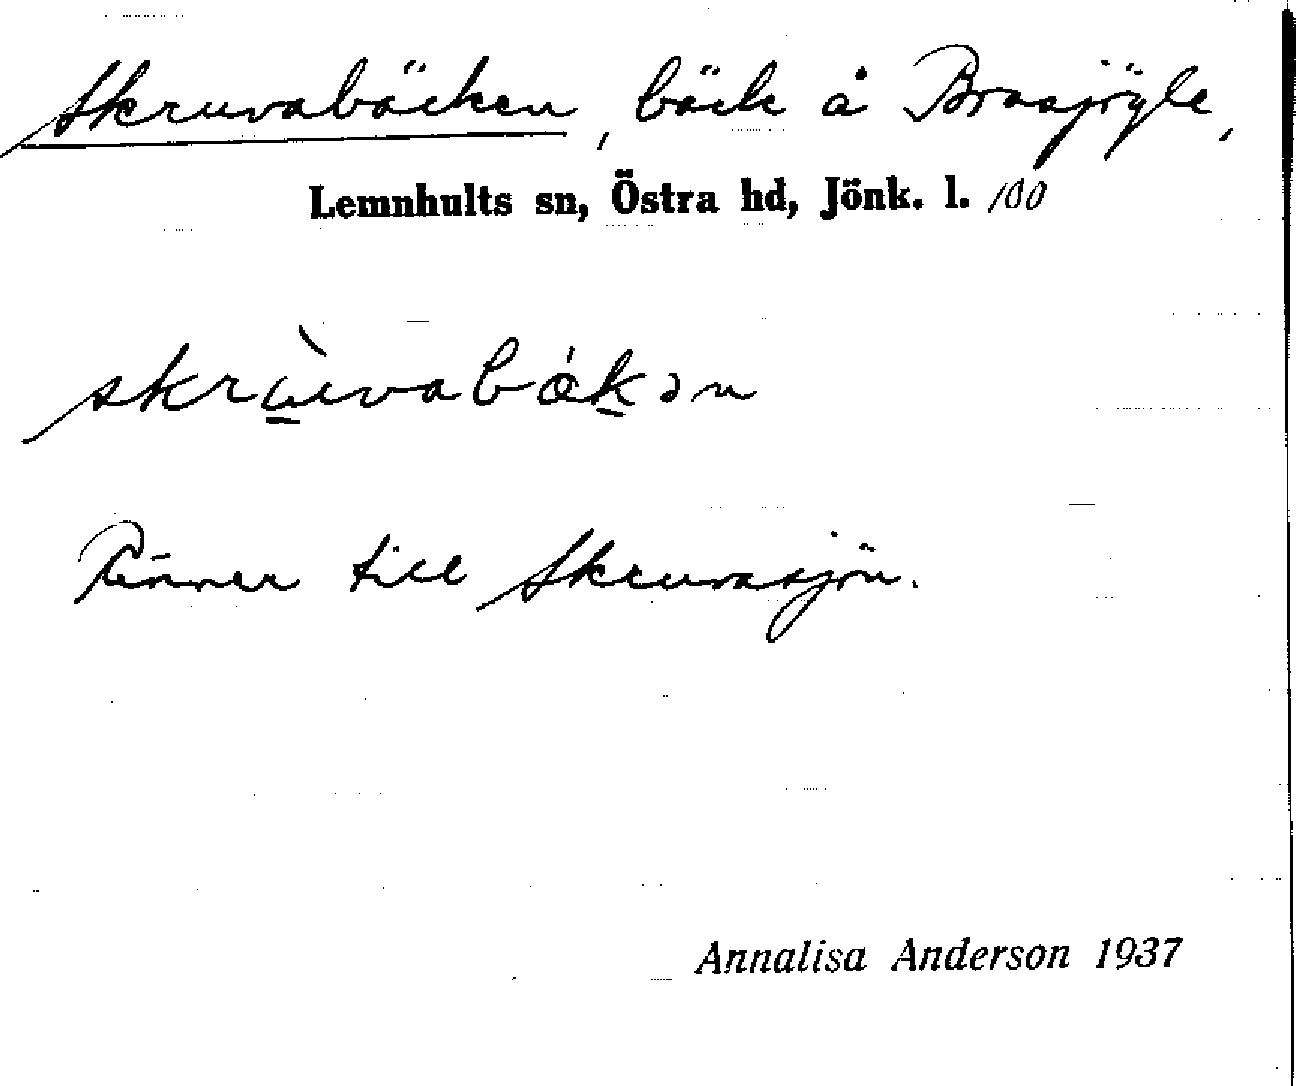 Skruvabäcken, bäck å Brasjögle,
Lemnhults sn, Östra hd, Jönk. l. 100
skrùvabǽkən
Rinner till Skruvasjön.
Annalisa Anderson 1937